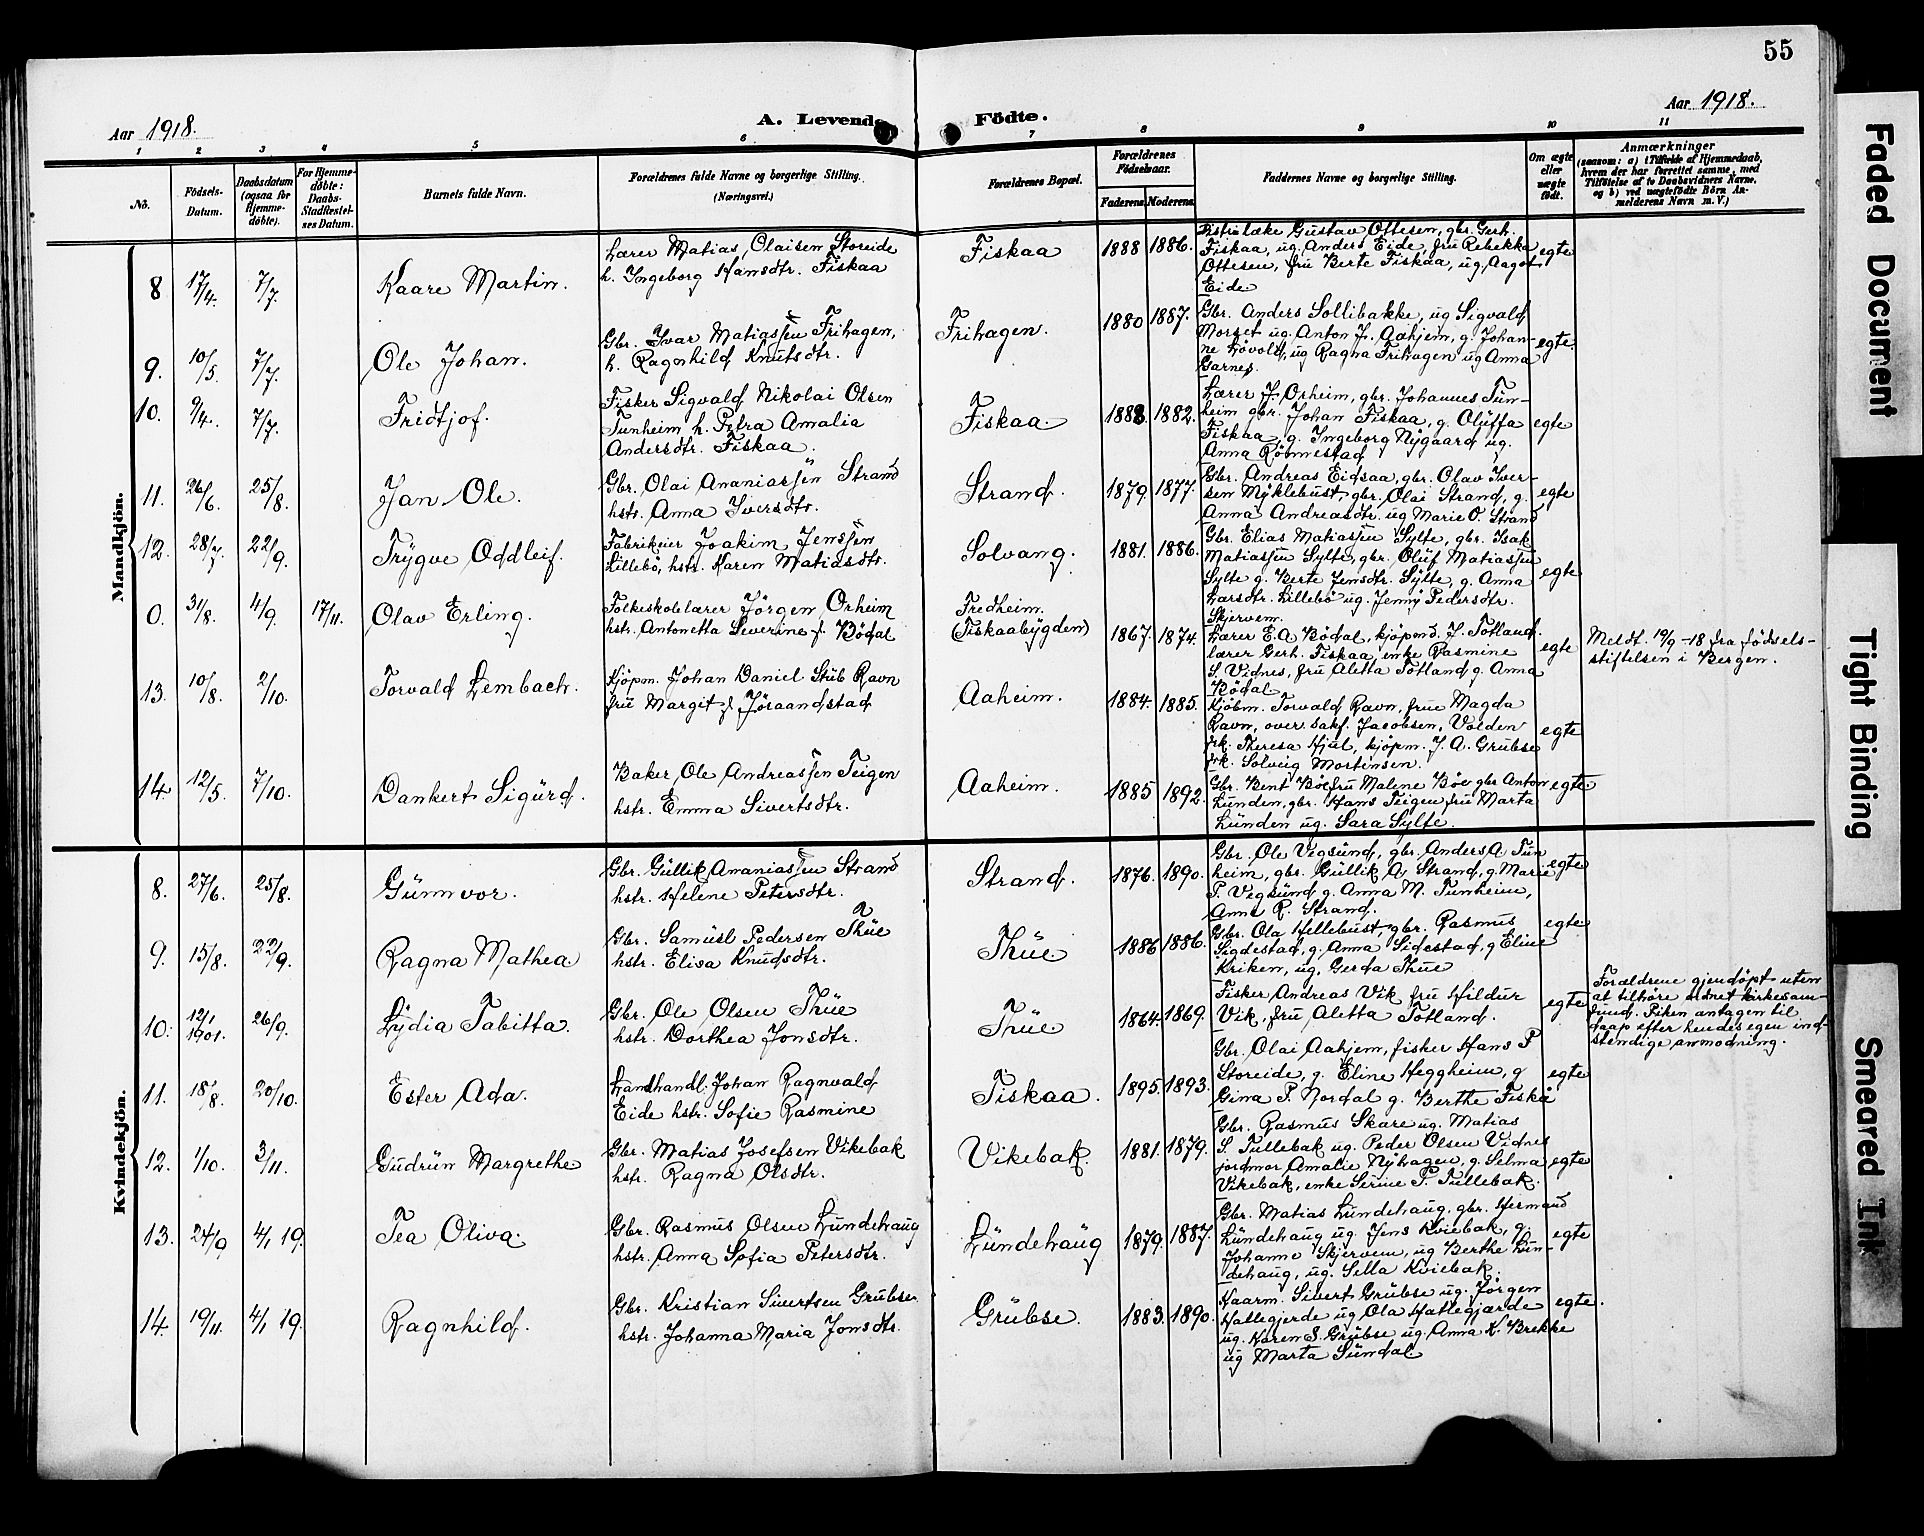 55
Aar 1918.
A. Levende Födte.
Aar 1918.
1 2 3 4 5 6 7 8 9 10 11
No.
Födsels-
Datum.
Daabsdatum
(ogsaa for
Hjemme-
döbte).
For Hjemme-
döbte:
Daabs-
Stadfæstel-
ses Datum.
Barnets fulde Navn.
Forældrenes fulde Navne og borgerlige Stilling.
(Næringsvei.)
Forældrenes Bopæl.
Forældrenes
Födselsaar.
Faderens. Moderens.
Faddernes Navne og borgerlige Stilling.
Om ægte
eller
uægte
födt.
Anmærkninger
(saasom: a) i Tilfælde af Hjemmedaab,
hvem der har forrettet samme, med
Tilföielse af to Daabsvidners Navne,
og b) ved uægtefödte Börn An-
melderens Navn m. V.)
Mandkjön.
8 17/4. 7/7. Kaare Martin.
Lærer Matias Olaisen Storeide
h. Ingeborg Hansdtr. Fiskaa
Fiskaa 1888 1886.
Gustav Ottesen, gbr. Gerh.
Fiskaa, ug. Anders Eide, fru Rebekka
Ottesen, fru Berte Fiskaa, ug. Aagot
Eide
egte
9. 10/5. 7/7. Ole Johan.
Gbr. Ivar Matiassen Frihagen,
h. Ragnhild Knutsdtr.
Frihagen. 1880 1887.
Gbr. Anders Sollibakke, ug Sigvald
Morset ug. Anton J. Aahjem, g. Johan-
ne Lövold, ug Ragna Frihagen ug Anna
Garnes.
egte.
10. 9/4. 7/7. Fridtjof.
Fisker Sigvald Nikolai Olsen
Tunheim h. Petra Amalia
Andersdtr. Fiskaa.
Fiskaa. 1888 1882.
Lærer J. Orheim, gbr. Johannes Tun-
heim gbr. Johan Fiskaa, g. Oluffa
Fiskaa, g. Ingeborg Nygaard ug.
Anna Rönnestad
egte
11. 26/6. 25/8. Jan Ole.
Gbr. Olai Ananiassen Strand
hstr. Anna Iversdtr.
Strand. 1879. 1877.
Gbr. Andreas Eidsaa, gbr. Olav Iver-
sen Myklebust, gbr. Olai Strand, g.
Anna Andreasdtr. ug Marie O. Strand
egte
12. 28/7. 22/9. Trygve Oddleif.
Fabrikeier Joakim Jenssen
Lillebö, hstr. Karen Matiasdtr.
Solvang. 1881. 1886.
Gbr. Elias Matiassen Sylte, gbr. Isak
Matiassen Sylte, gbr. Oluf Matiassen
Sylte g. Berte Jensdtr. Sylte, g. Anna
Larsdtr. Lillebö ug. Jenny Pedersdtr.
Skjervem.
egte
0. 31/8. 4/9. 17/11. Olav Erling.
Folkeskolelærer Jörgen Orheim
hstr. Antonetta Severine f. Bödal
Fredheim.
(Fiskaabygden) 1867. 1874.
Lærer E.A. Bödal, kjöpmd. J. Totland.
lærer Gerh. Fiskaa, enke Rasmine
S. Vidnes, fru Aletta Totland, g. Anna
Bödal
egte
Meldt. 19/9-18 fra födsels-
stiftelsen i Bergen.
13. 10/8. 2/10. Torvald Lembach.
Kjöpm. Johan Daniel Stüb Ravn
fru Margit f. Jöraandstad
Aaheim. 1884. 1885.
Kjöbm. Torvald Ravn, frue Magda
Ravn, overs. sakf. Jacobsen, Volden
frk. Theresa Hjul, kjöpm. J. A. Grubse
frk. Solveig Mortinsen.
egte
14. 12/5. 7/10. Dankert Sigurd.
Baker Ole Andreassen Teigen
hstr. Emma Sivertsdtr.
Aaheim. 1885 1892.
Gbr. Bent Böe fru Malene Böe gbr Anton
Lunden, gbr. Hans Teigen fru Marta
Lunden ug. Sara Sylte.
egte.
Kvindekjön.
8. 27/6. 25/8. Gunvor.
Gbr. Gullik Ananiassen Strand
hstr. Helene Petersdtr.
Strand. 1876. 1890.
Gbr. Ole Vegsund, gbr. Anders A Tun
heim, gbr. Gullik A Strand, g. Marie
P. Vegsund, g. Anna M. Tunheim,
Anne R. Strand.
egte
9. 15/8. 22/9. Ragna Mathea
Gbr. Samuel Pedersen Thue
hstr. Elisa Knudsdtr.
Thue 1886 1886.
Gbr. Ola Hellebust, gbr. Rasmus
Sigdestad, g. Anna Sidestad, g Eline
Kriken, ug. Gerda Thue
egte.
10. 12/1 1901. 26/9. Lydia Tabitta.
Gbr. Ole Olsen Thue
hstr. Dorthea Jonsdtr.
Thue 1864. 1869.
Fisker Andreas Vik fru Hildur
Vik, fru Aletta Totland.
egte
Forældrene gjendöpt uten
at tilhöre ordnet kirkesam-
fund. Piken antagen til
daap efter hendes egen ind-
stendige anmodning.
11. 18/8. 20/10. Ester Ada.
Landhandl. Johan Ragnvald
Eide hstr. Sofie Rasmine
Fiskaa. 1895. 1893.
Gbr. Olai Aahjem, fisker Hans P
Storeide, g. Eline Heggheim, g
Gina P. Nordal g. Berthe Fiskå
egte
12. 1/10. 3/11. Gudrun Margrethe
Gbr. Matias Josefsen Vikebak
hstr. Ragna Olsdtr.
Vikebak. 1881. 1879.
Gbr. Rasmus Skare ug. Matias
S. Tullebak ug. Peder Olsen Vidnes
jordmor Amalie Nyhagen, g. Selma
Vikebak, enke Serine P. Tullebak.
egte
13. 24/9 4/1 19. Tea Oliva.
Gbr. Rasmus Olsen Lundehaug
hstr. Anna Sofia Petersdtr.
Lundehaug 1879. 1887.
Gbr. Matias Lundehaug, gbr. Hermand
Lundehaug ug. Jens Kviebak, g.
Johanne Skjervem, ug Berthe Lun-
dehaug, ug. Silla Kviebak.
egte
14. 19/11. 4/1 19. Ragnhild.
Gbr. Kristian Sivertsen Grubse
hstr. Johanna Maria Jonsdtr.
Grubse. 1883. 1890.
Kaarm. Sivert Grubse ug. Jörgen
Hallegjerde ug Ola Hallegjærde
ug. Karen S. Grubse ug. Anna K. Brekke
ug Marta Sundal.
egte.
Faded Document
Tight Binding
Smeared Ink